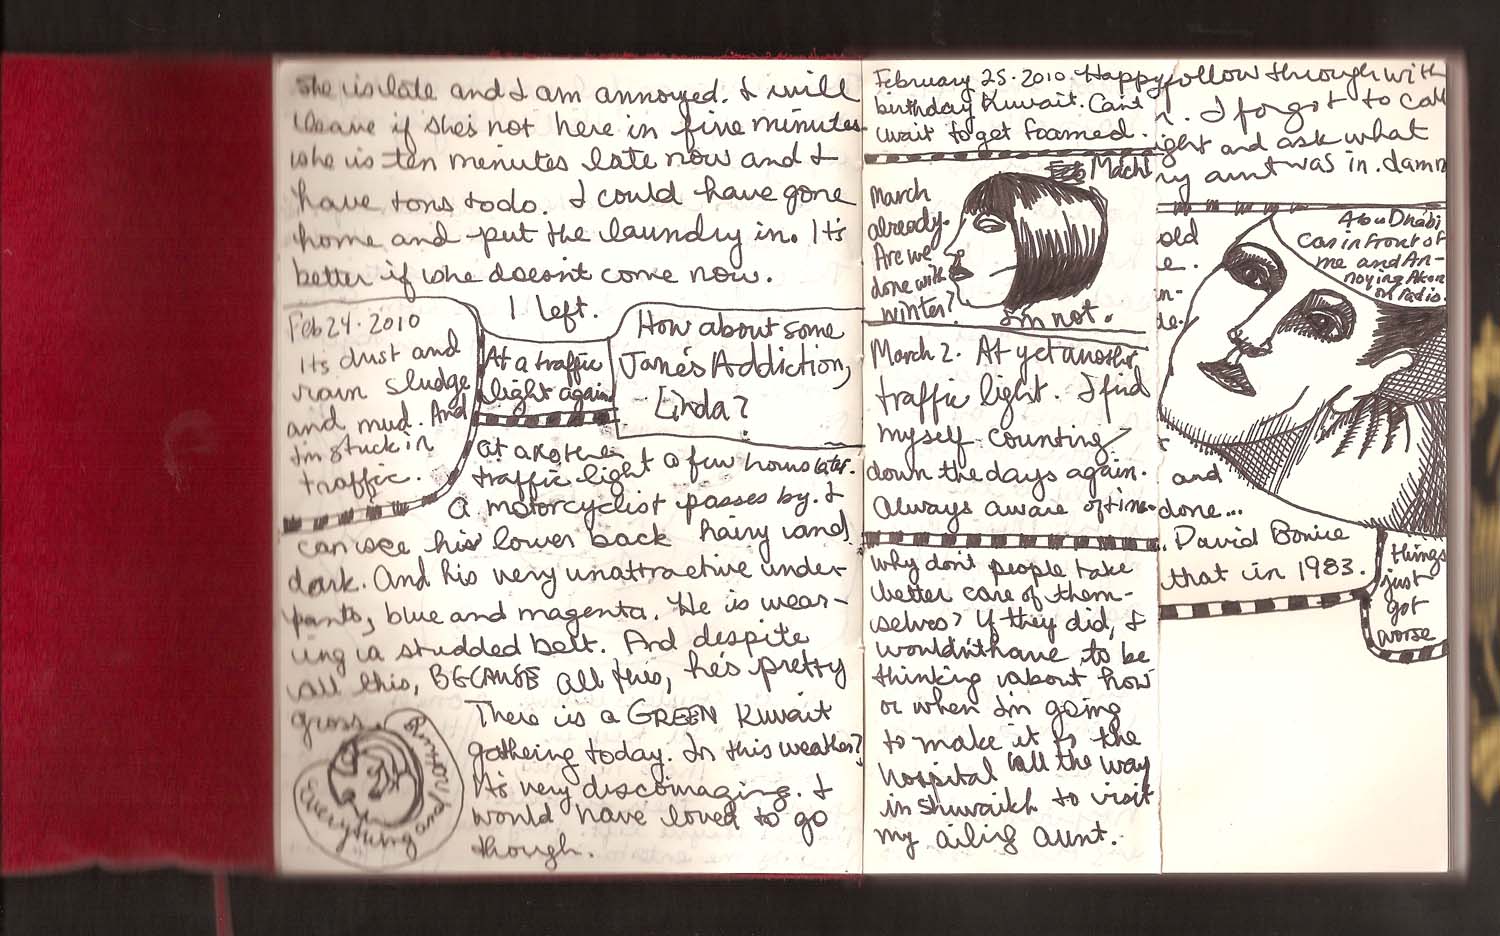 she is late and I am annoyed. I will
leave if she's not here in five minutes
she is ten minutes late now and I
have tons to do. I could have gone
home and put the laundry in. It's
better if she doesn't come now.
I left.
Feb 24 · 2010
Its dust and
rain sludge
and mud. And
I'm stuck in
traffic.
At a traffic
light again
How about some
Jane's Addiction,
Linda?
At another
traffic light a few hours later.
A motorcyclist passes by. I
can see his lower back hairy and
dark. And his very unattractive under-
pants, blue and magenta. He is wear-
ing a studded belt. And despite
all this, BECAUSE all this, he's pretty
gross.
Everything and
There is a GREEN Kuwait
gathering today. In this weather?
It's very discouraging. I
would have loved to go
though.
February 25 · 2010 Happy
birthday Kuwait. Can't
wait to get foamed.
March
March
already.
Are we
done with
winter?
I'm not.
March 2. At yet another
traffic light. I find
myself counting
down the days again.
Always aware of time
why don't people take
better care of them-
selves? If they did, I
wouldn't have to be
thinking about how
or when I'm going
to make it to the
hospital all the way
in Shuwaikh to visit
my ailing aunt.
follow through with
. I forgot to call
ight and ask what
my aunt was in. damn
Abu Dhabi
Car in front of
me and An-
noying Akon
on radio.
old
e.
an-
de-
and
done...
. David Bowie
that in 1983.
things
just
got
worse